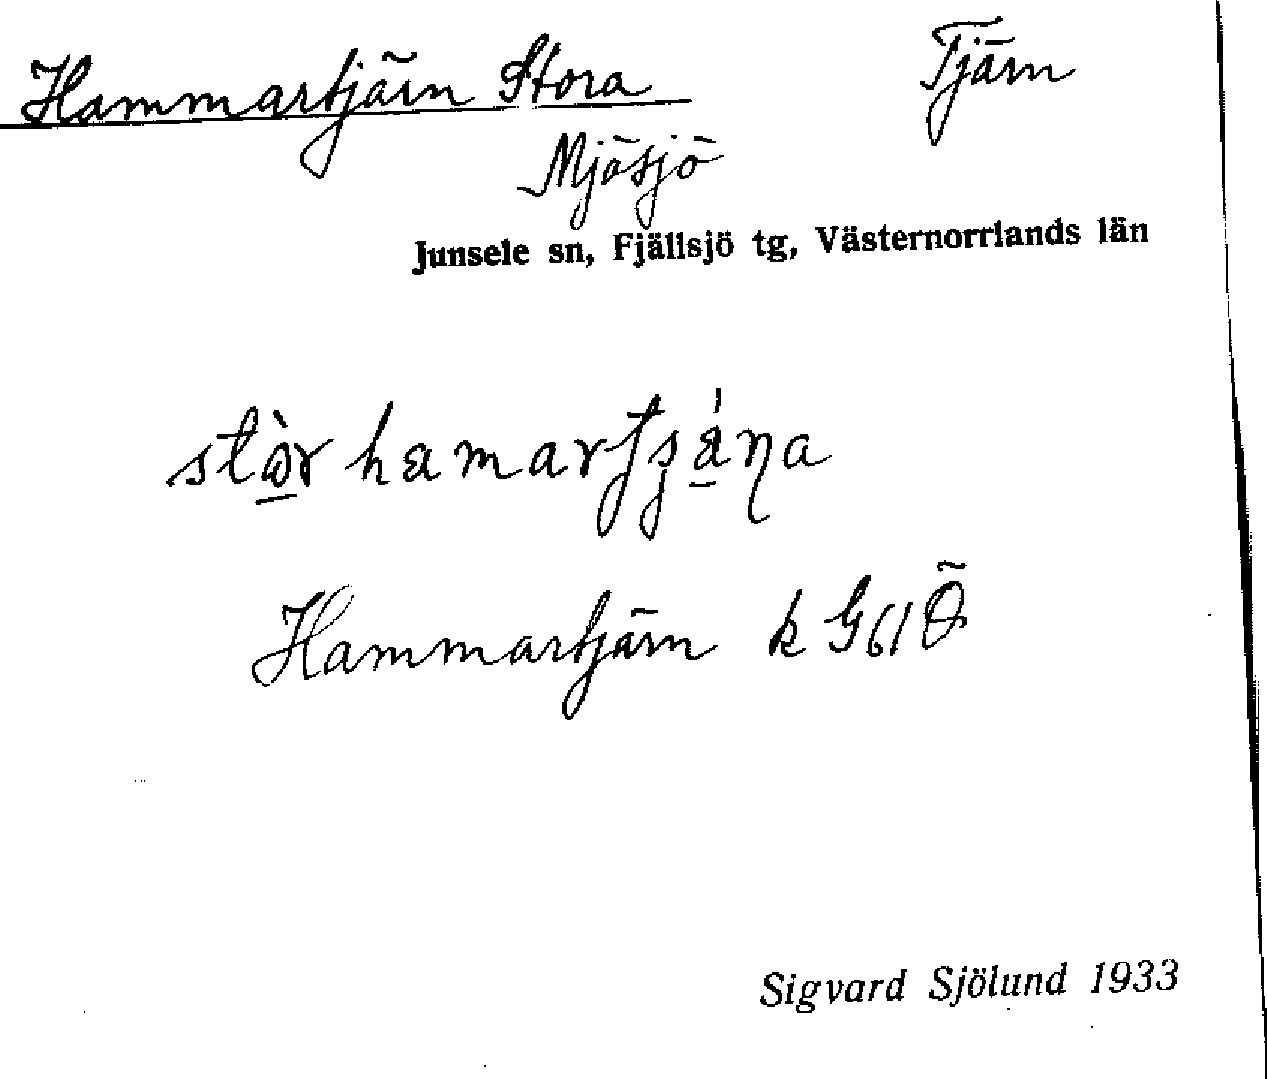 Hammartjärn Stora
Tjärn
Mjösjö
Junsele sn, Fjällsjö tg, Västernorrlands län
Hammartjärn k G61 Ö
Sigvard Sjölund 1933